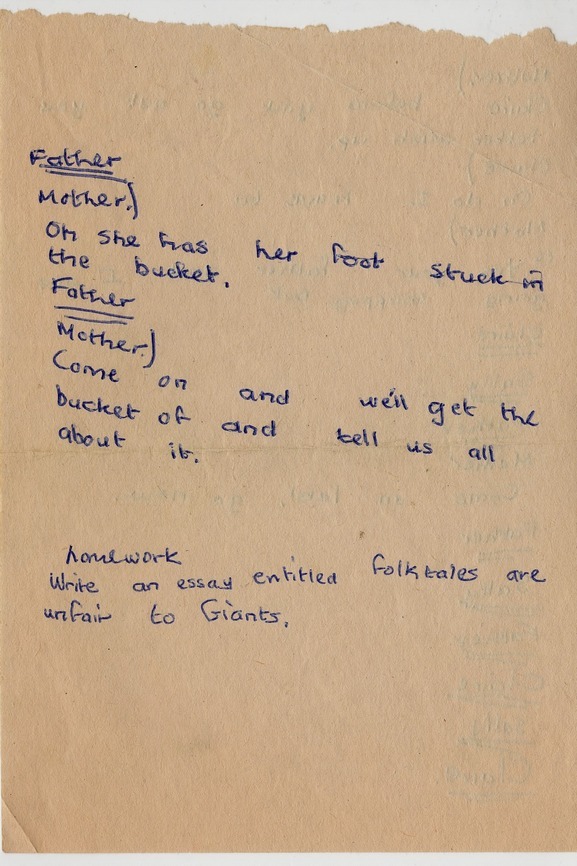 Father
Mother.)
Oh she has her foot stuck in
the bucket.
Father
Mother.)
Come on and we'll get the
bucket of and tell us all
about it.
homework
Write an essay entitled folktales are
unfair to Giants.